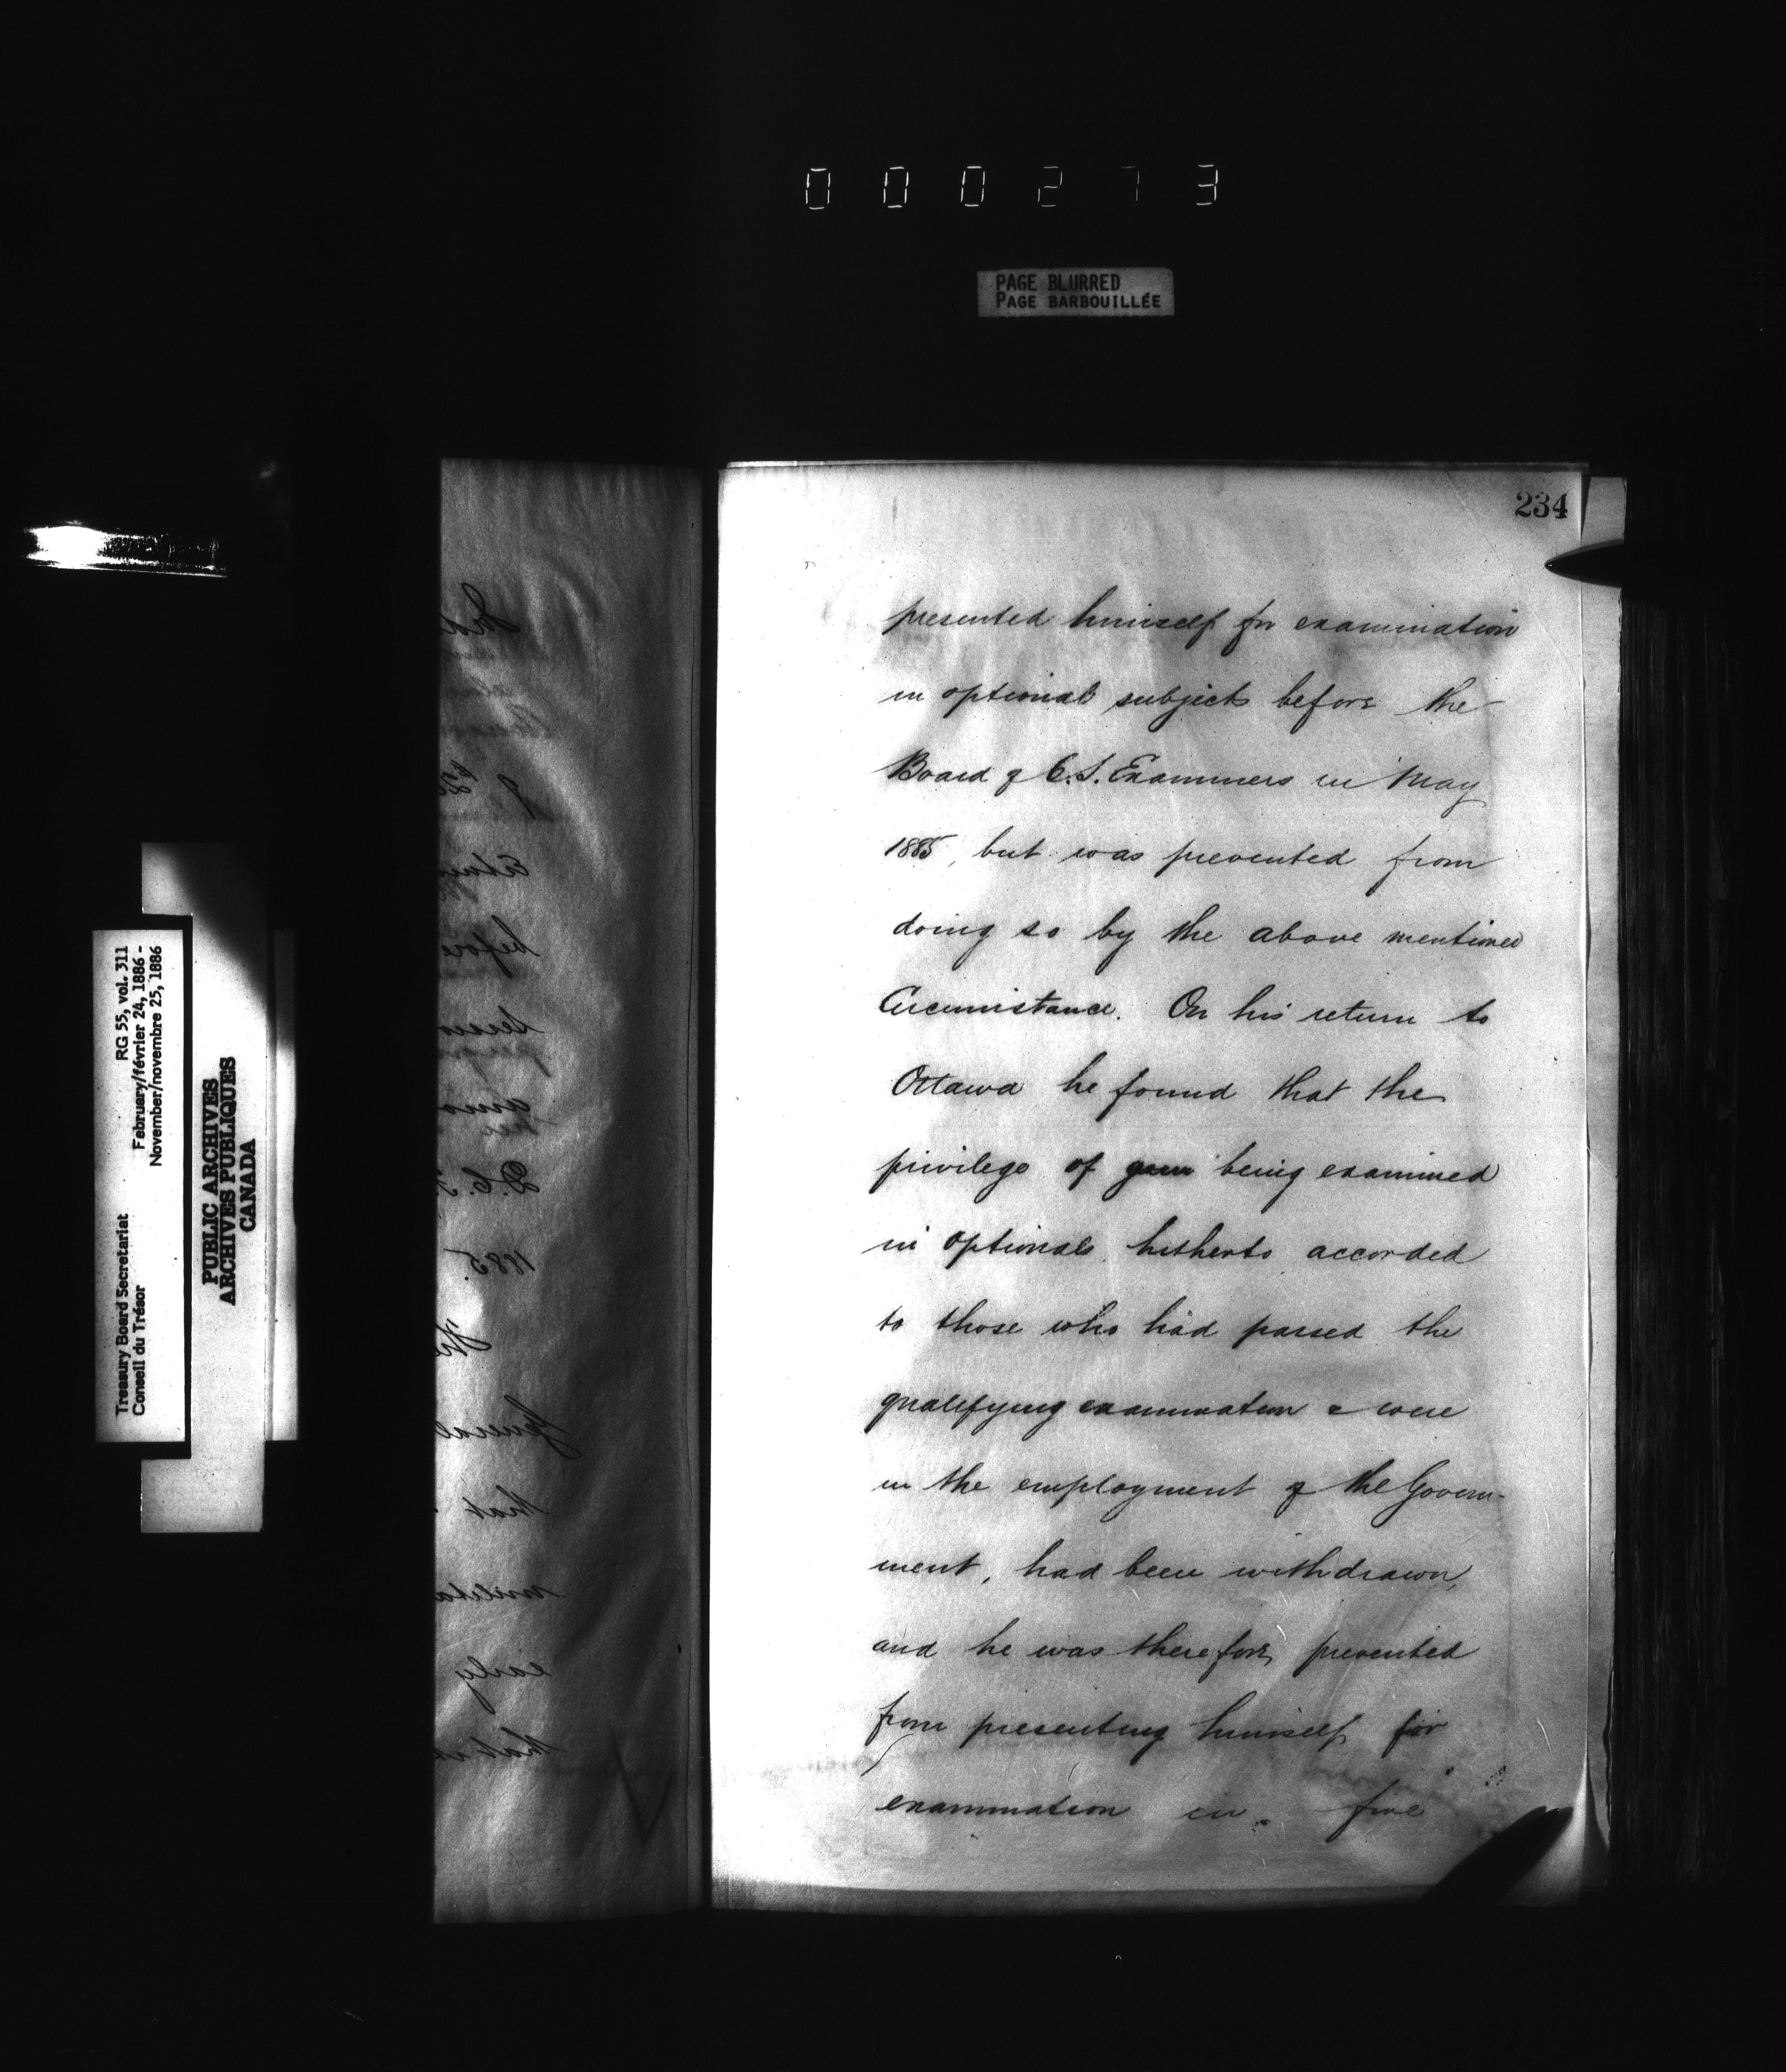 000273
PAGE BLURRED
PAGE BARBOUILLÉE
234
presented himself for examination
in optional subjects before the
Board of C.S. Examiners in May
1885, but was prevented from
doing so by the above mentioned
Circumstance. On his return to
Ottawa he found that the
privilege of being examined
in optionals hitherto accorded
to those who had passed the
qualifying examination & were
in the employment of the Govern-
ment, had been withdrawn,
and he was therefore prevented
from presenting himself for
examination in five
Treasury Board Secretariat RG 55, vol. 311
Conseil du Trésor February/février 24, 1886 -
November/novembre 25, 1886
PUBLIC ARCHIVES
ARCHIVES PUBLIQUES
CANADA
before
1885.
General
that
early